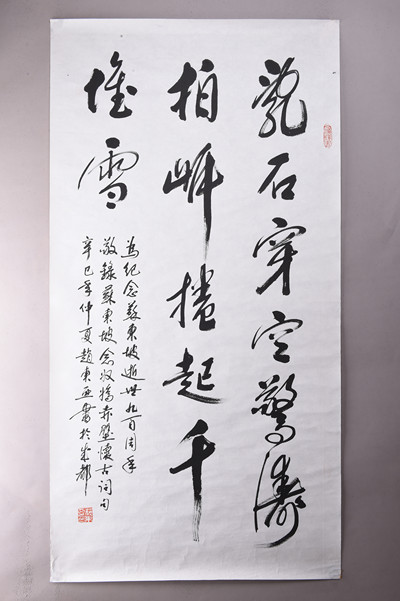 亂石穿空驚濤
拍岸捲起千
堆雪
為紀念蘇東坡逝世九百周年
敬錄蘇東坡念奴嬌赤壁懷古詞句
辛巳年仲夏趙東 書於 都